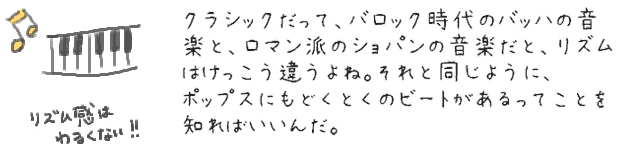 クラシックだって、バロック時代のバッハの音
楽と、ロマン派のショパンの音楽だと、リズム
はけっこう違うよね。それと同じように、
ポップスにもどくとくのビートがあるってことを
知ればいいんだ。
リズム感は
わるくない!!